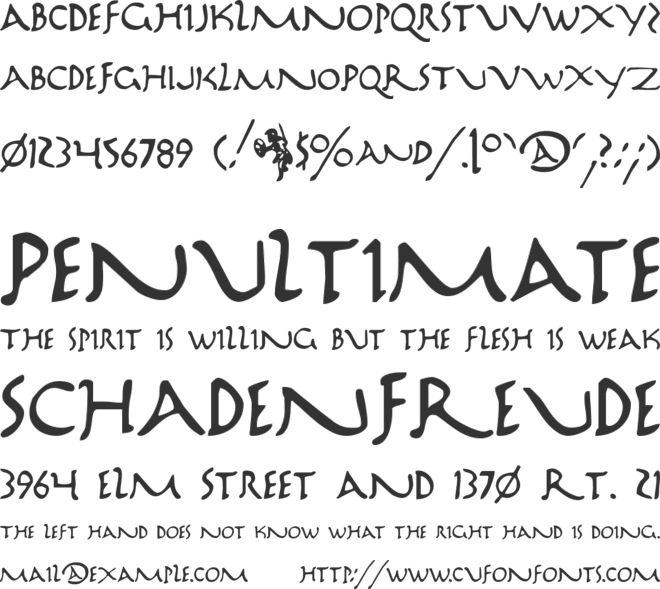 ABCDEFGHIJKLMNOPQRSTUVWXYZ
ABCDEFGHIJKLMNOPQRSTUVWXYZ
0123456789 (!$%AND/.1°`@´;?:;)
PENULTIMATE
THE SPIRIT IS WILLING BUT THE FLESH IS WEAK
SCHADENFREUDE
3964 ELM STREET AND 1370 RT. 21
THE LEFT HAND DOES NOT KNOW WHAT THE RIGHT HAND IS DOING.
MAIL@EXAMPLE.COM HTTP://WWW.CUFONFONTS.COM